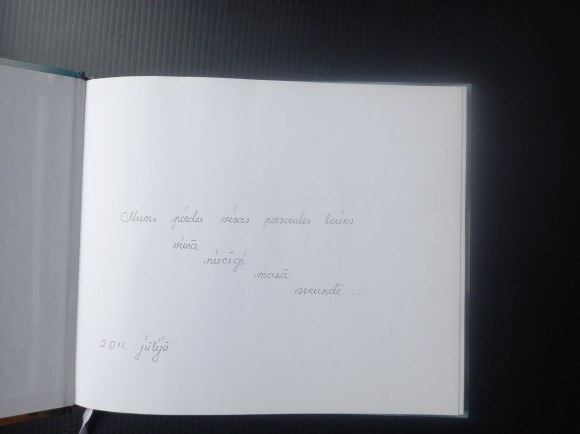 Mums pieder visas pasaules laiks
vienā
niecīgi
mazā
sekundē ...
2011. jūlijā